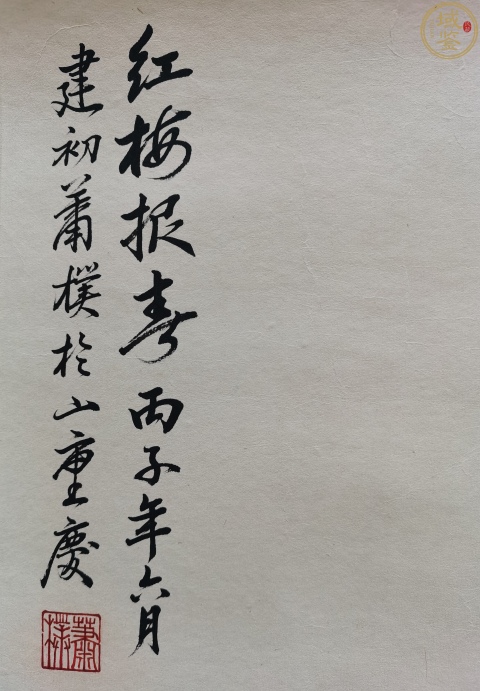 红梅报春丙子年六月
建初蕭樸於山重慶
蕭樸